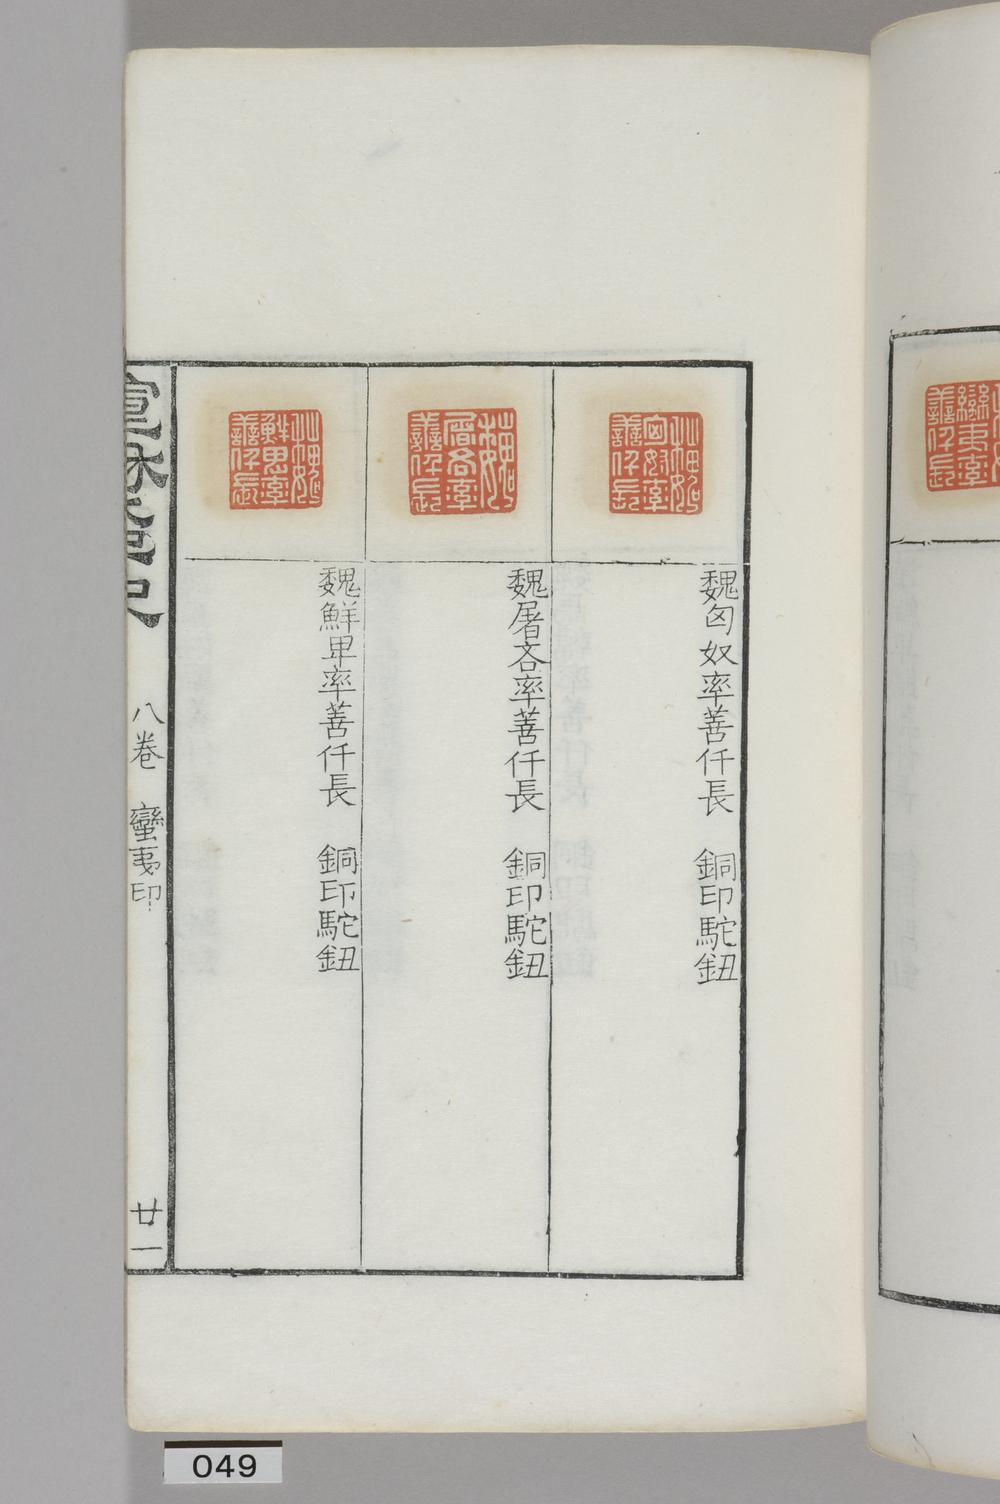 魏匈奴率善仟長　銅印駝鈕
魏屠各率善仟長　銅印駝鈕
魏鮮卑率善仟長　銅印駝鈕
宣和集古印史　八卷　蠻夷印　廿一
049